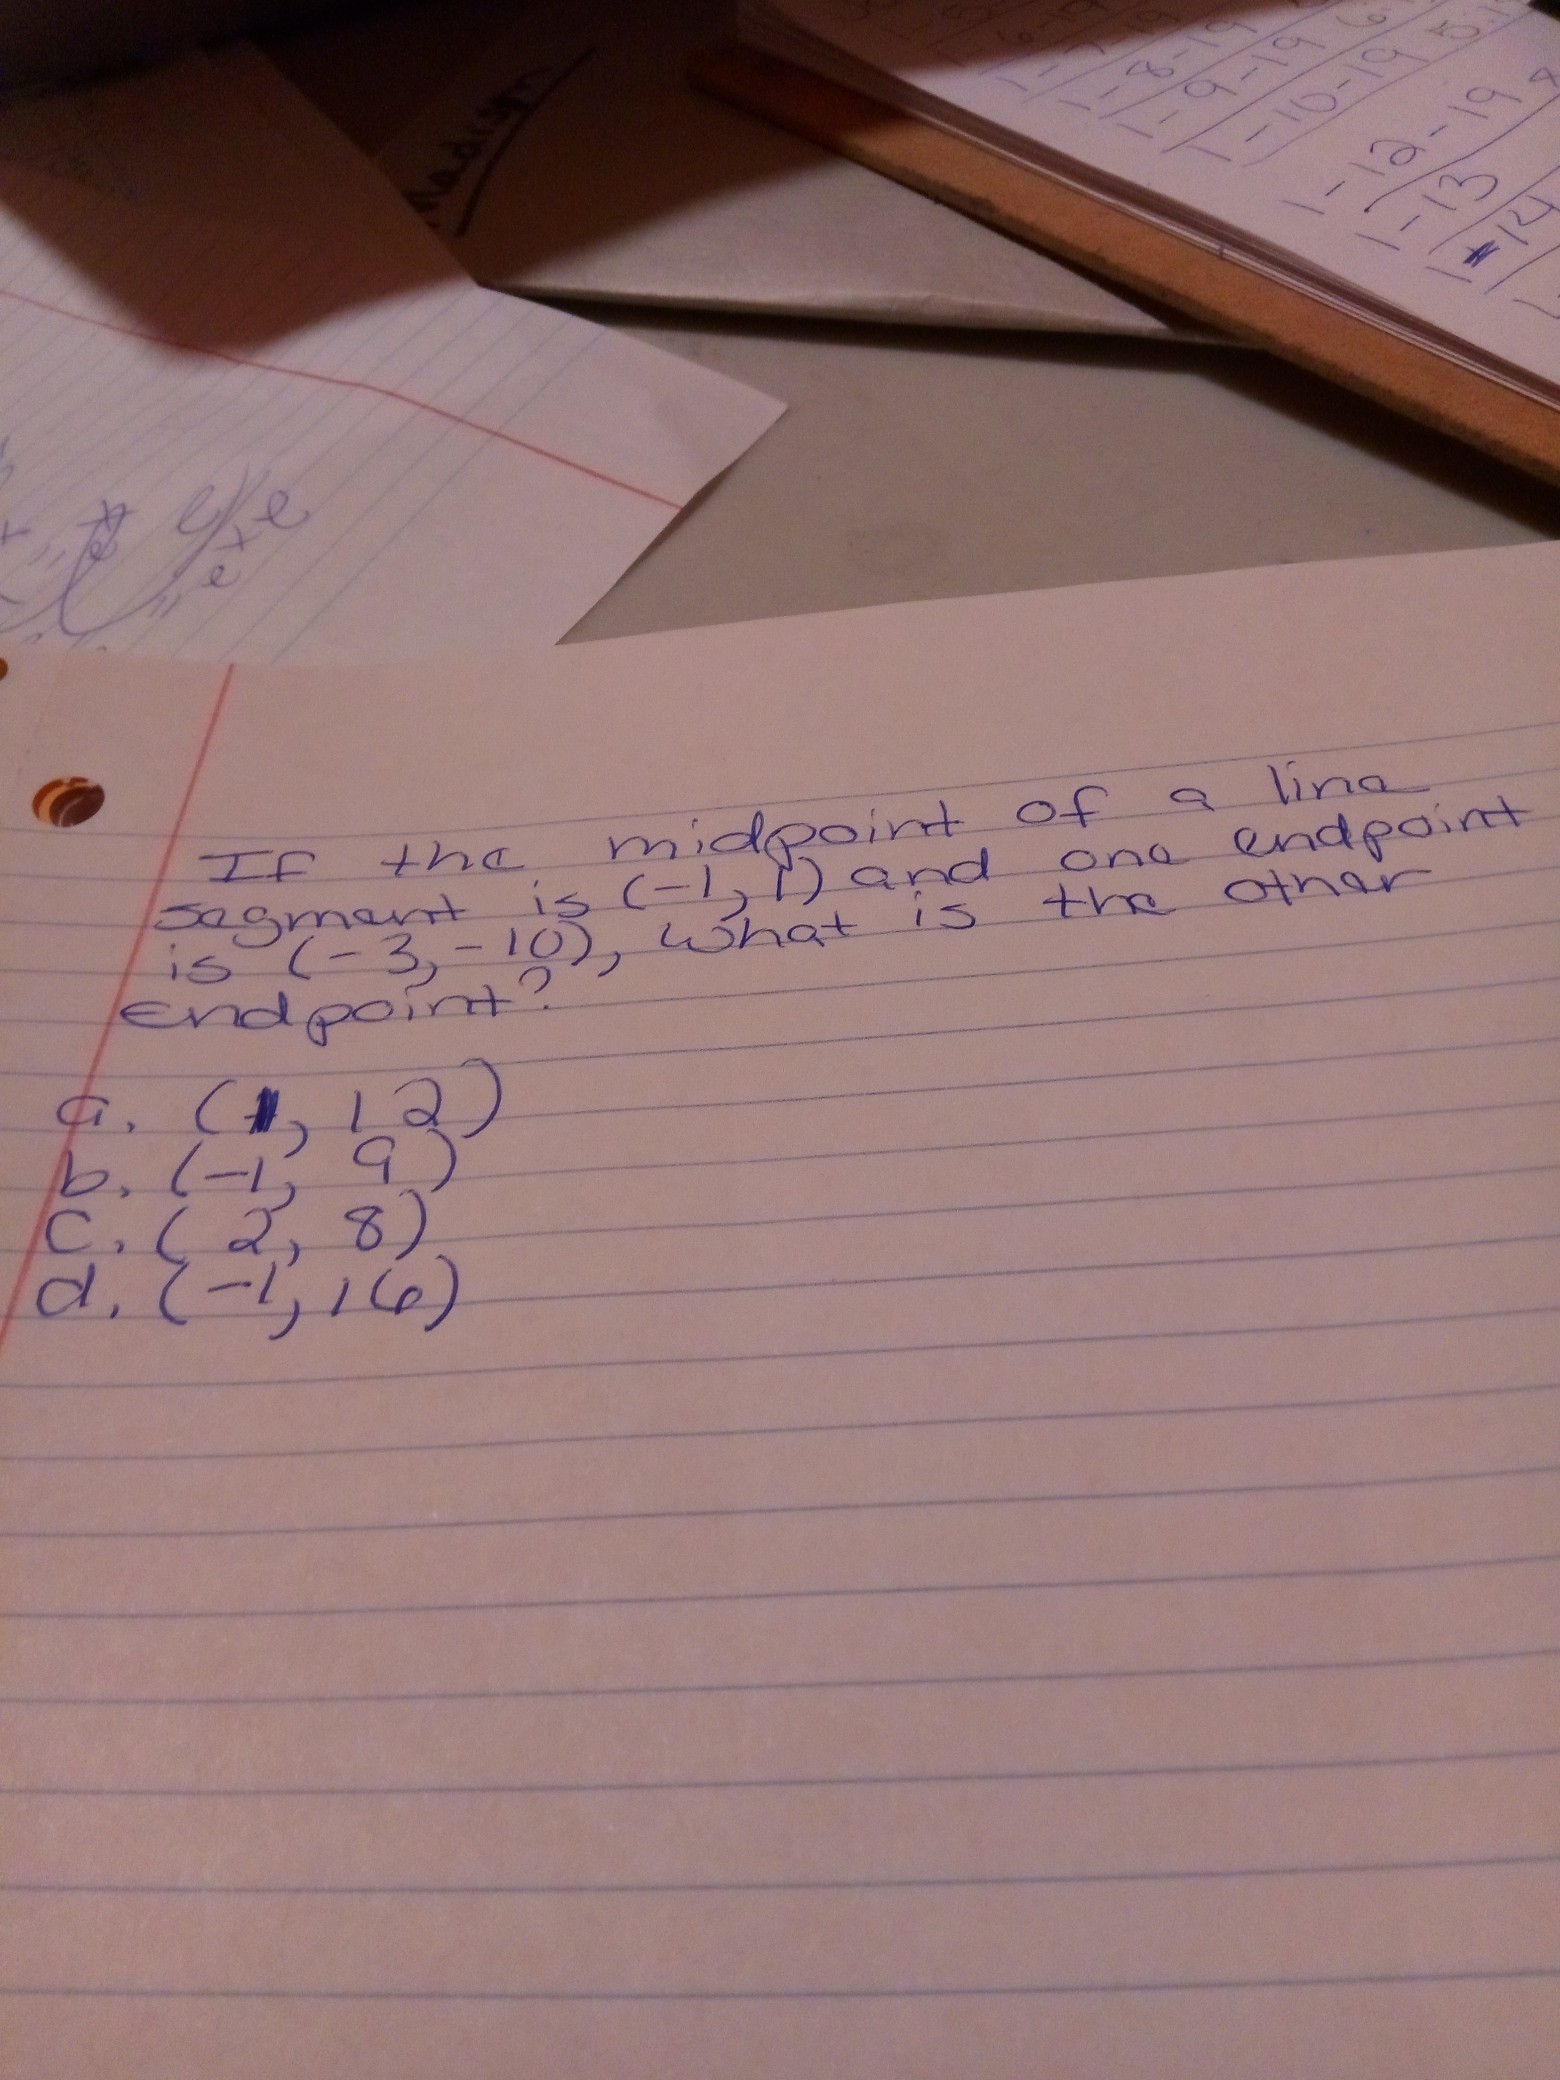 Madisyn
1-8-19
1-9-19
1-10-19
1-12-19
1-13
1-14
If the midpoint of a line
segment is (-1, 1) and one endpoint
is (-3, -10), what is the other
endpoint?
a. (1, 12)
b. (-1, 9)
c. (2, 8)
d. (-1, 16)